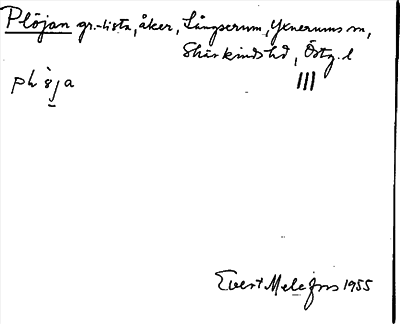 Plöjan gr.-lista, åker, Långserum, Yxnerums sn,
Skärkinds hd, Östg. l
III
Evert Melefors 1955